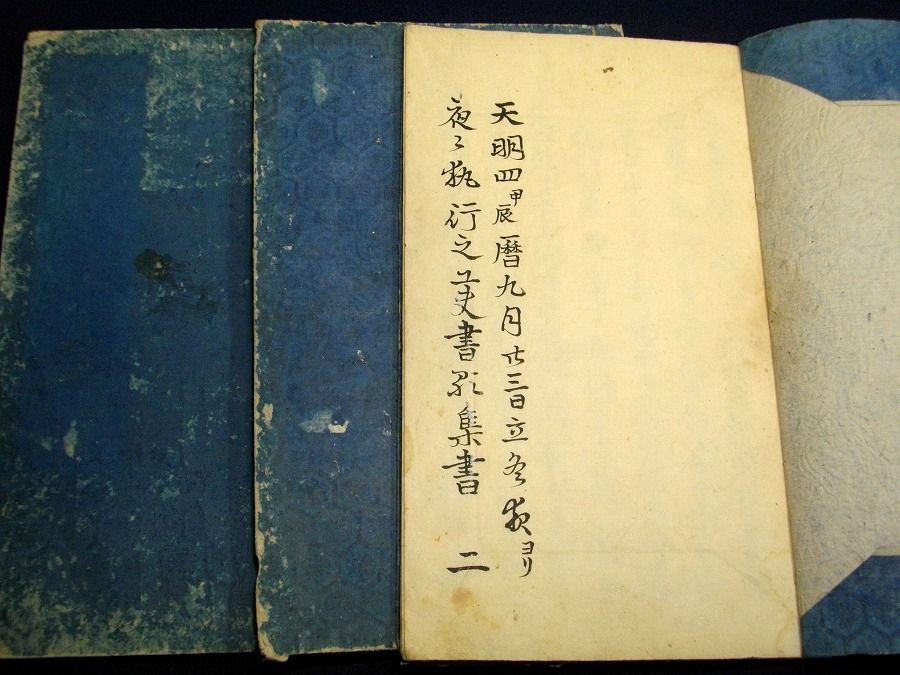 天明四甲辰暦九月廿三日立冬ヨリ
夜〻執行之工夫書集書 二